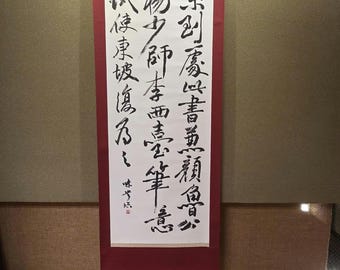 未到處此書兼顏魯公
楊少師李西臺筆意
試使東坡復為之